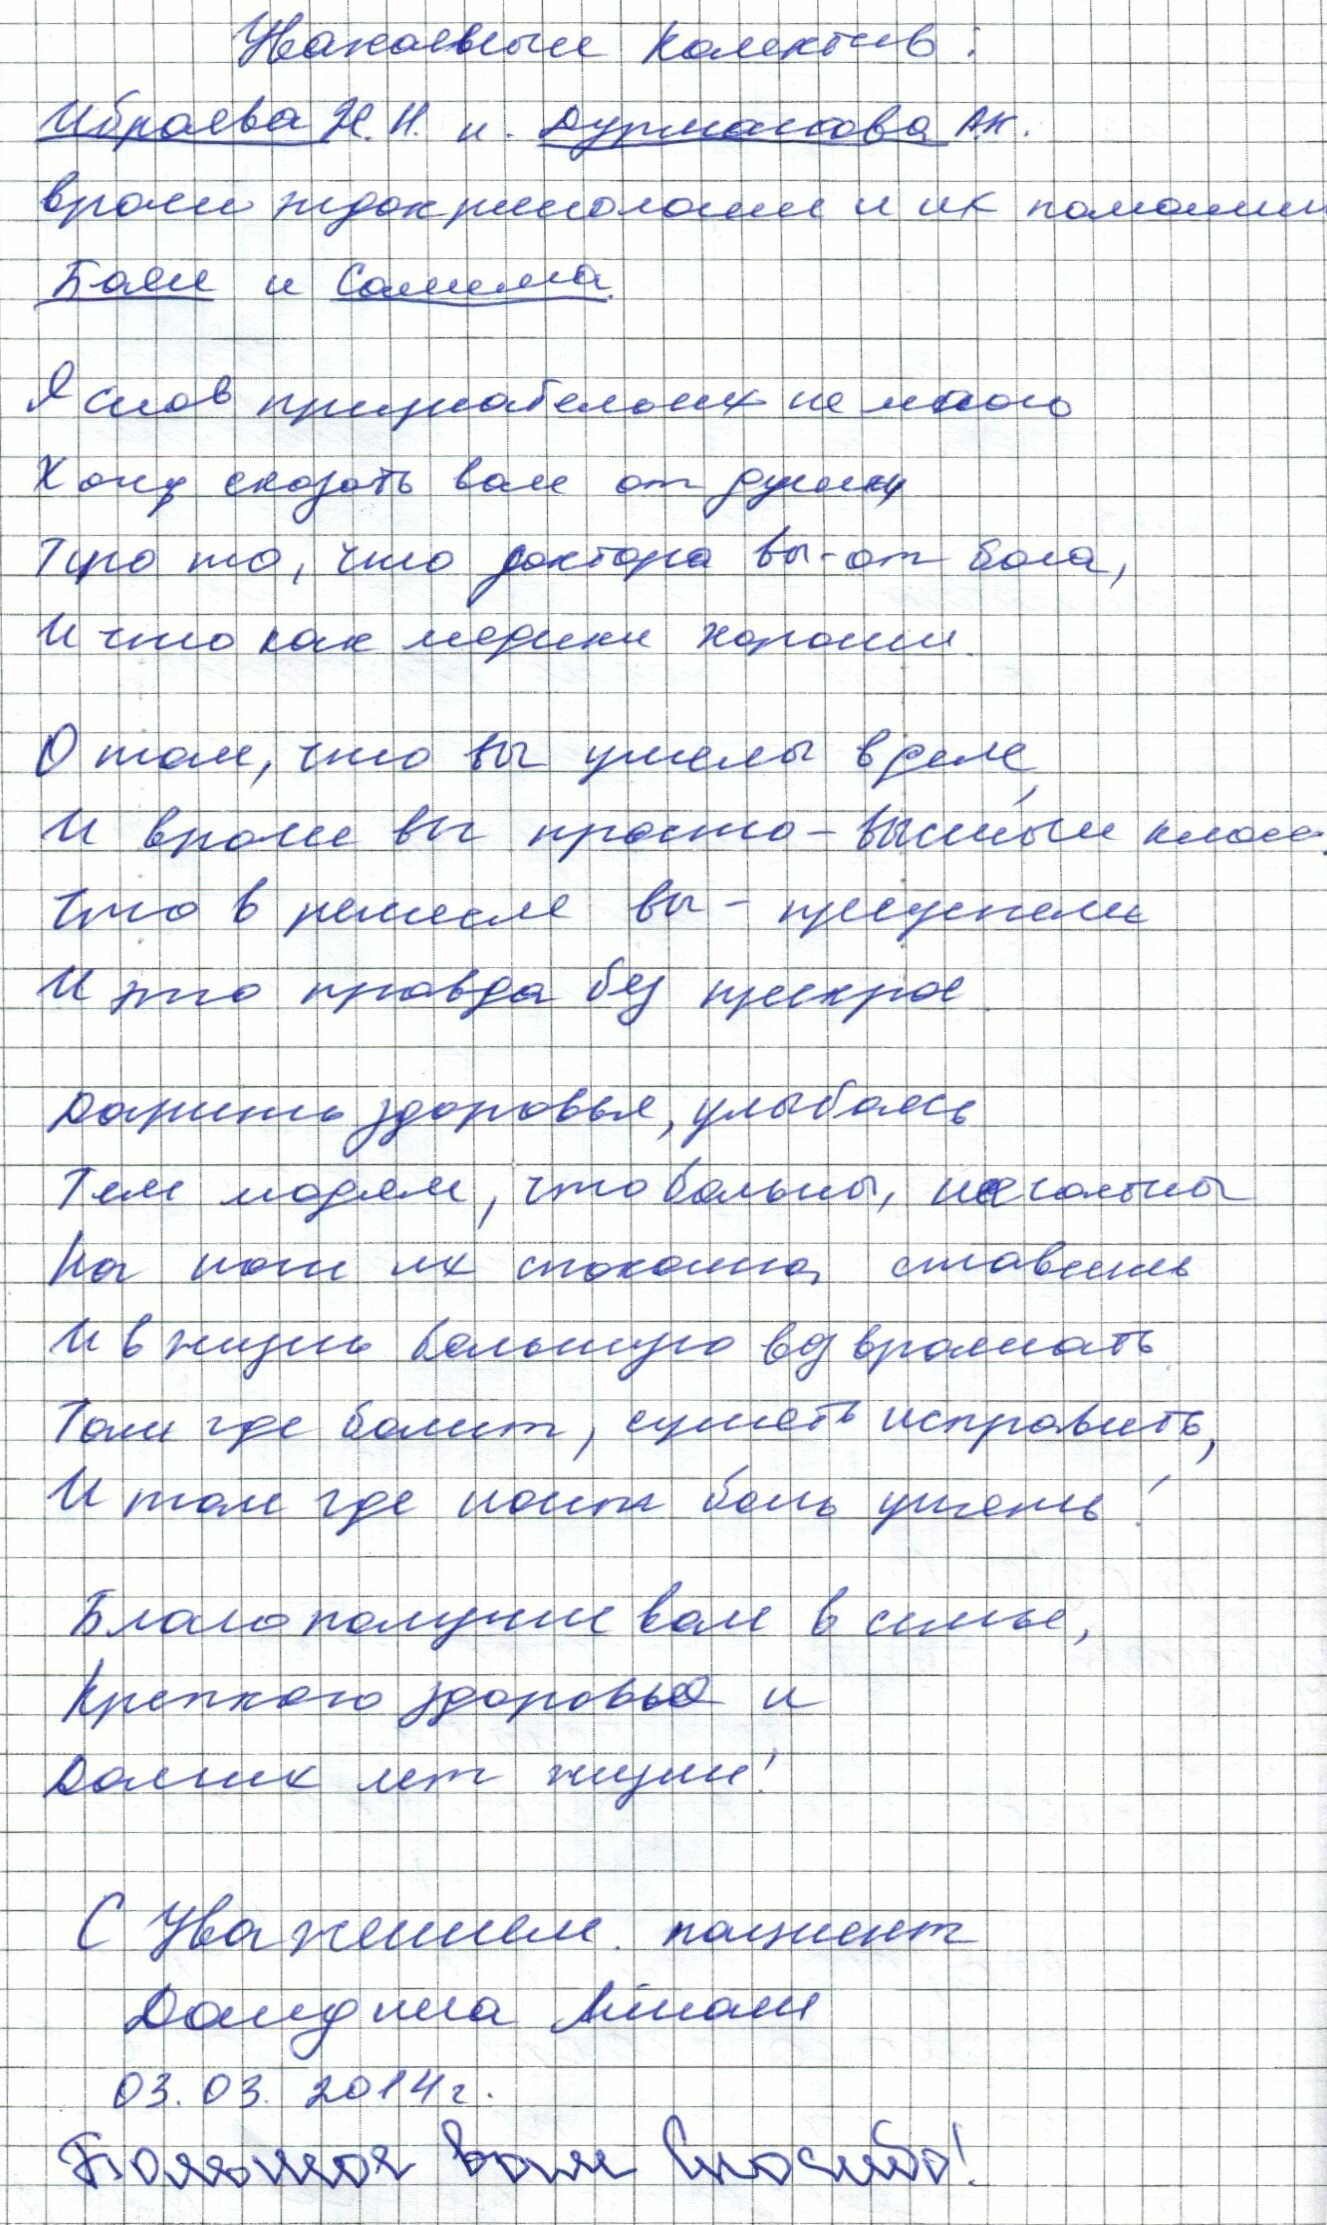 Уважаемый Колектив:
Ибраева Н.Н. и. Дурманова А.К.
врачи эндокринологи и их помощни
Баян и Салима.
Я слов признательных не мало
Хочу сказать вам от души
Про то, что доктора вы-от бога,
И что как медики хороши.
О том, что вы умелы в деле,
И врачи вы просто - высший класс.
Что в ремесле вы - преуспели
И это правда без прикрас.
Дарить здоровье, улыбаясь
Тем людям, что больны, печальны
На ноги их спокойно, ставить
И в жизнь большую возвращать
Там где болит, суметь исправить,
И там где ноит боль унять!
Благополучии вам в семье,
Крепкого здоровья и
Долгих лет жизни!
С Уважением. пациент
03.03.2014г.
Большое вам Спасибо!